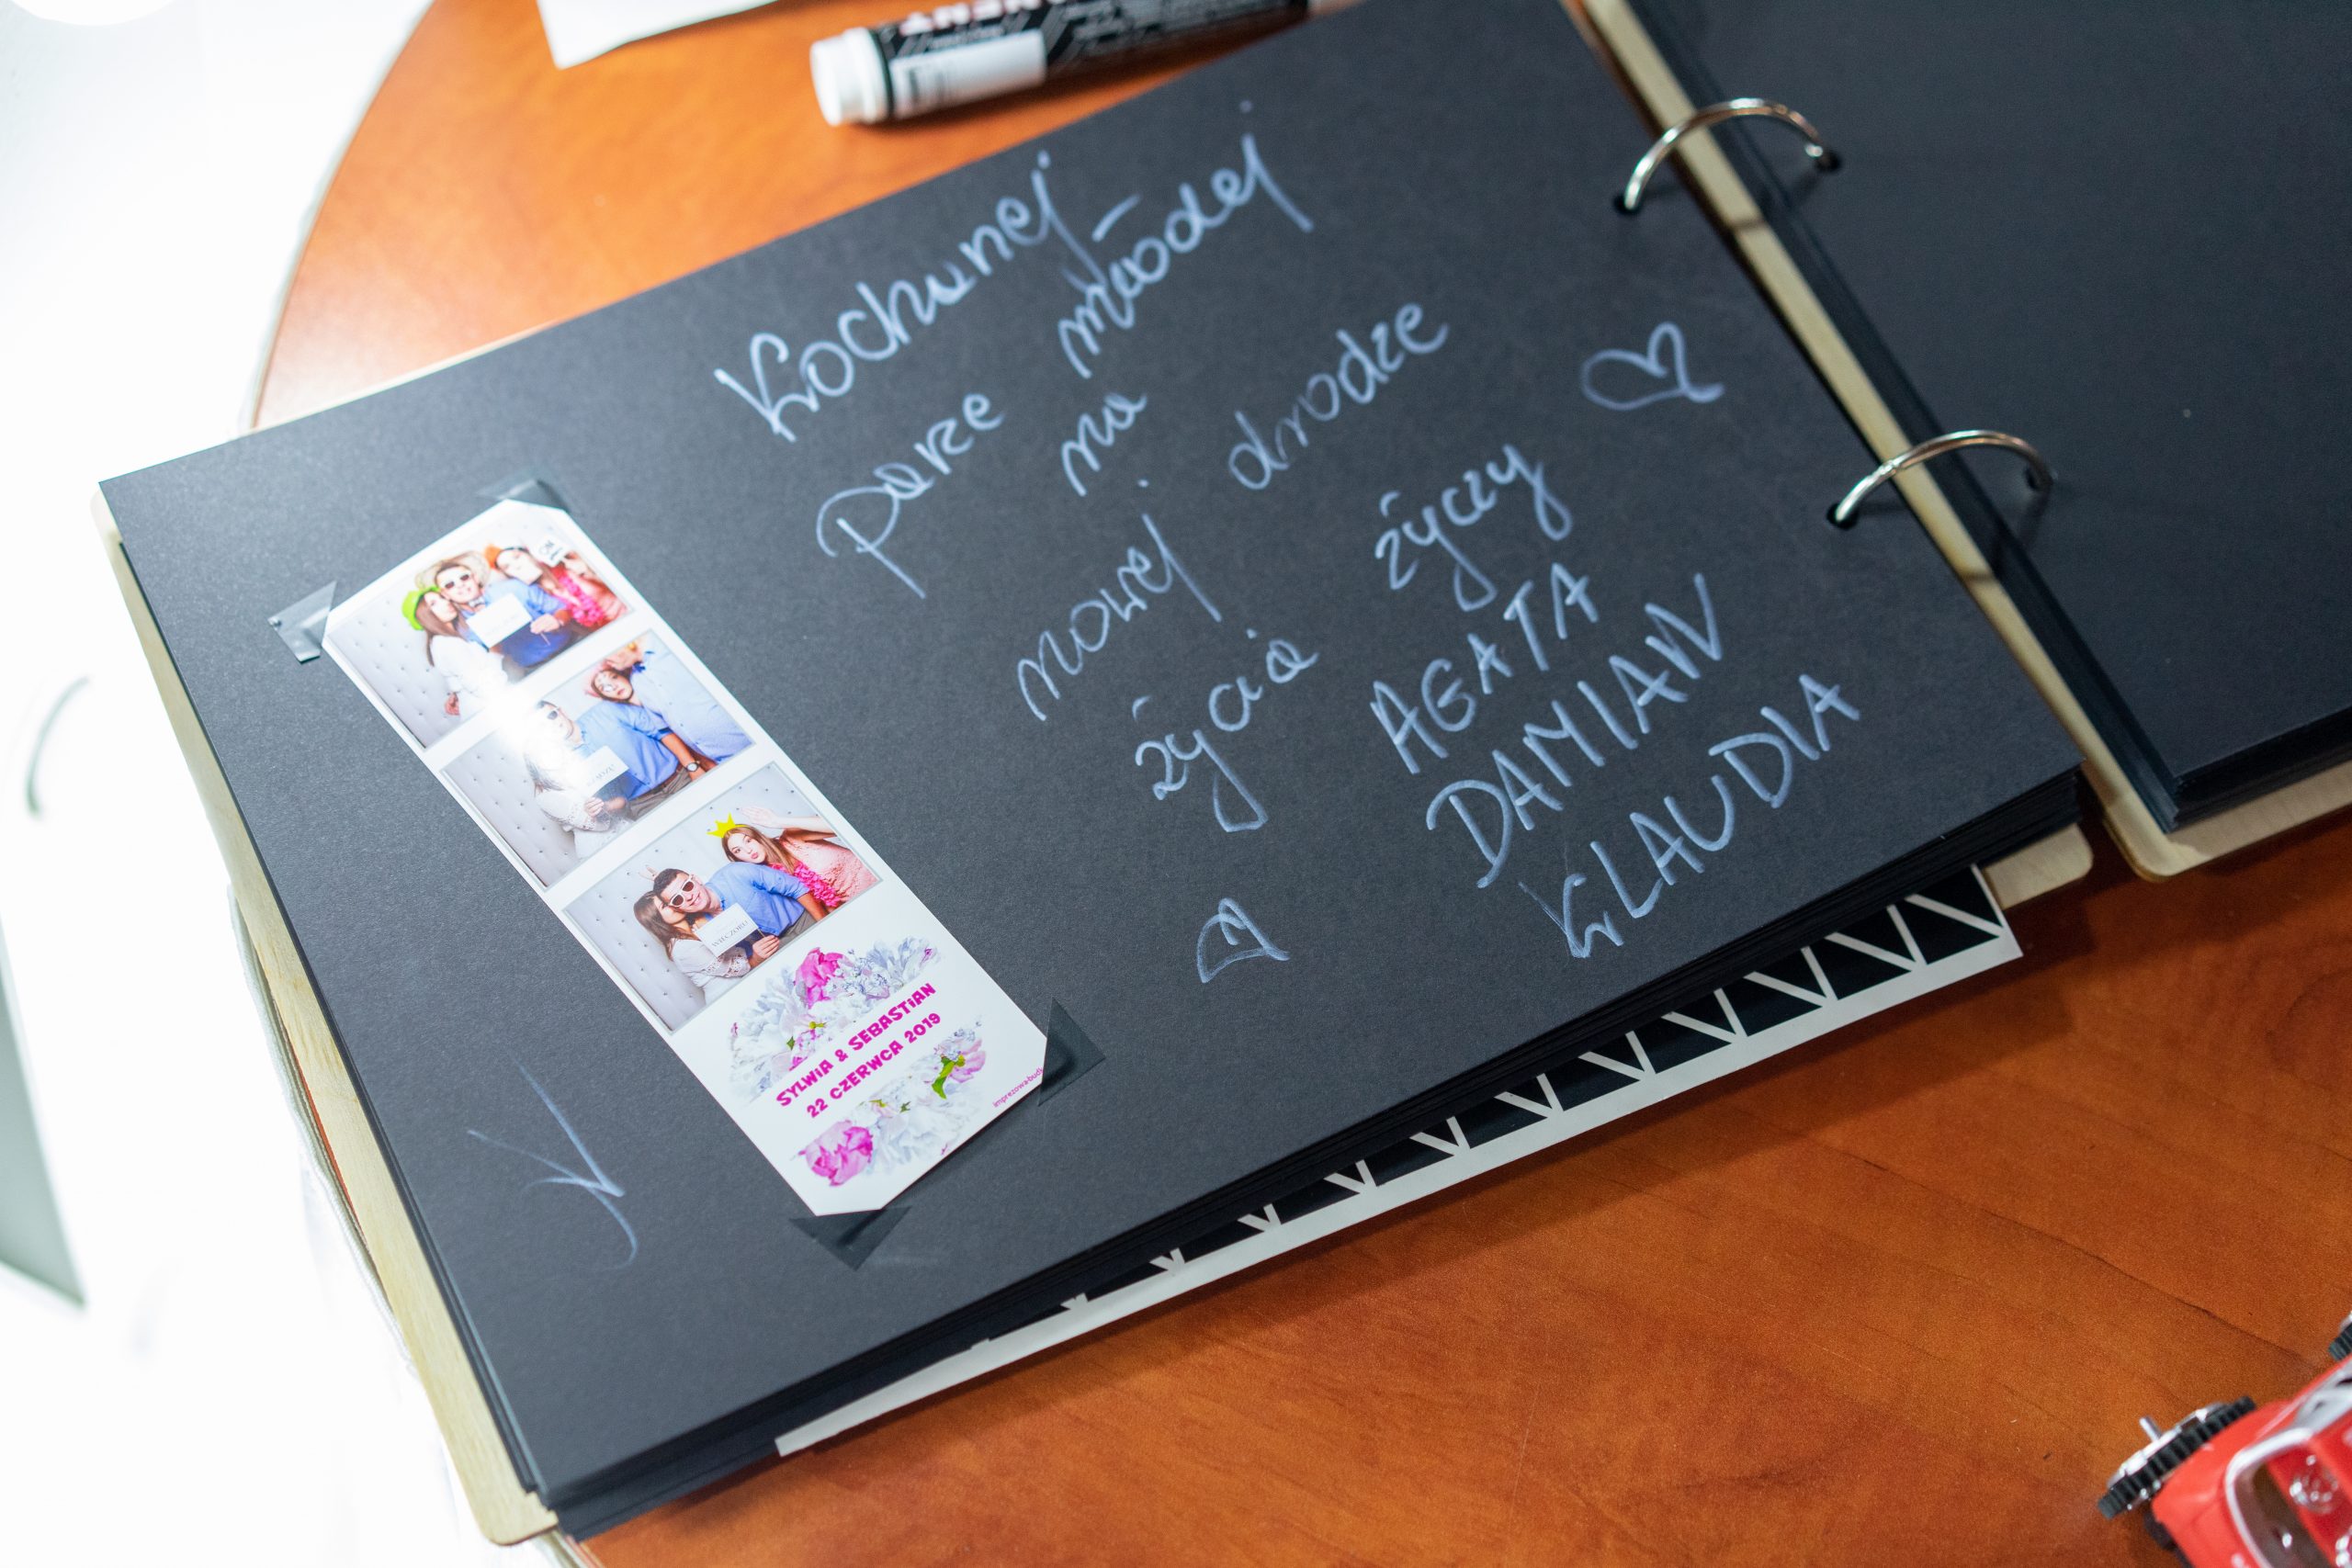 Kochanej
parze młodej
na
nowej drodze
życia życzy
AGATA
DAMIAN
KLAUDIA
WIECZORU
SYLWIA & SEBASTIAN
22 CZERWCA 2019